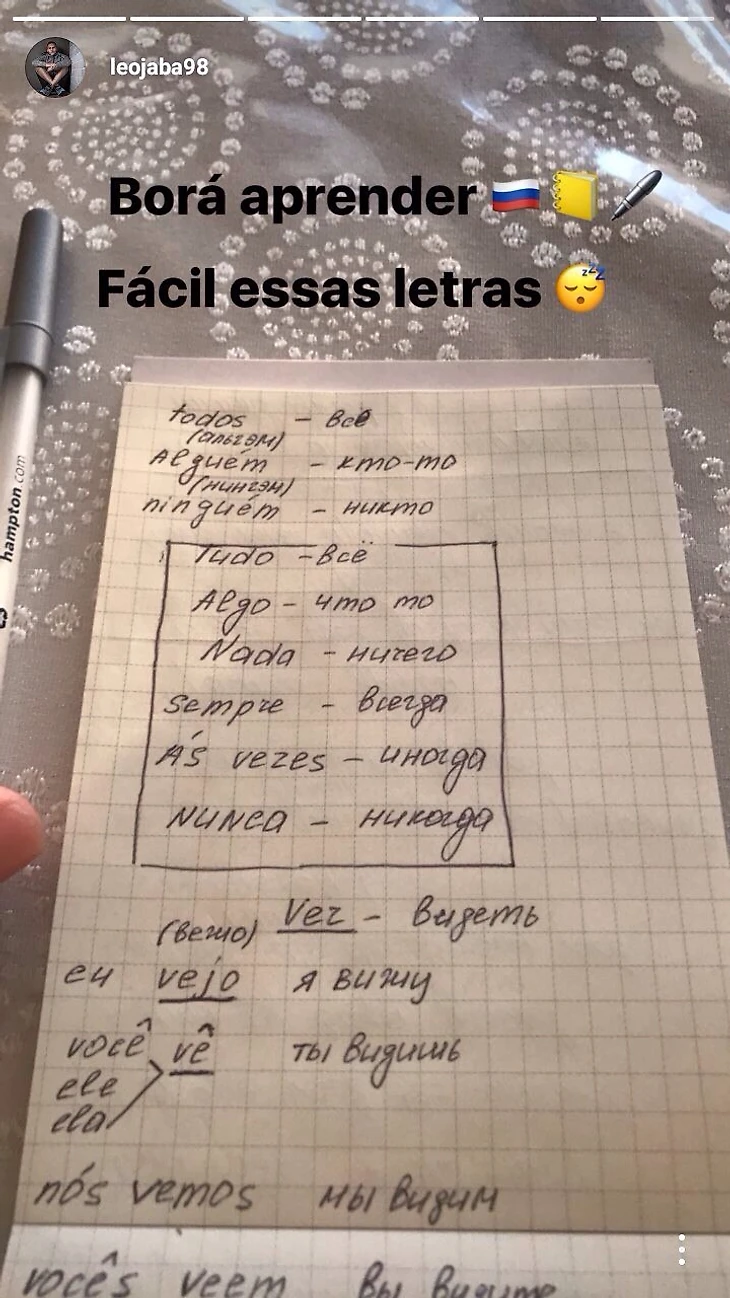 leojaba98
Borá aprender 🇷🇺📒🖊️
Fácil essas letras 😴
hampton.com
todos - все
(альгэм)
Alguém - кто-то
(нингэм)
ninguém - никто
Tudo - всё
Algo - что то
Nada - ничего
Sempre - всегда
Ás vezes - иногда
Nunca - никогда
(вежо) Ver - видеть
eu vejo я вижу
você vê ты видишь
ele
ela
nós vemos мы видим
vocês veem вы видите